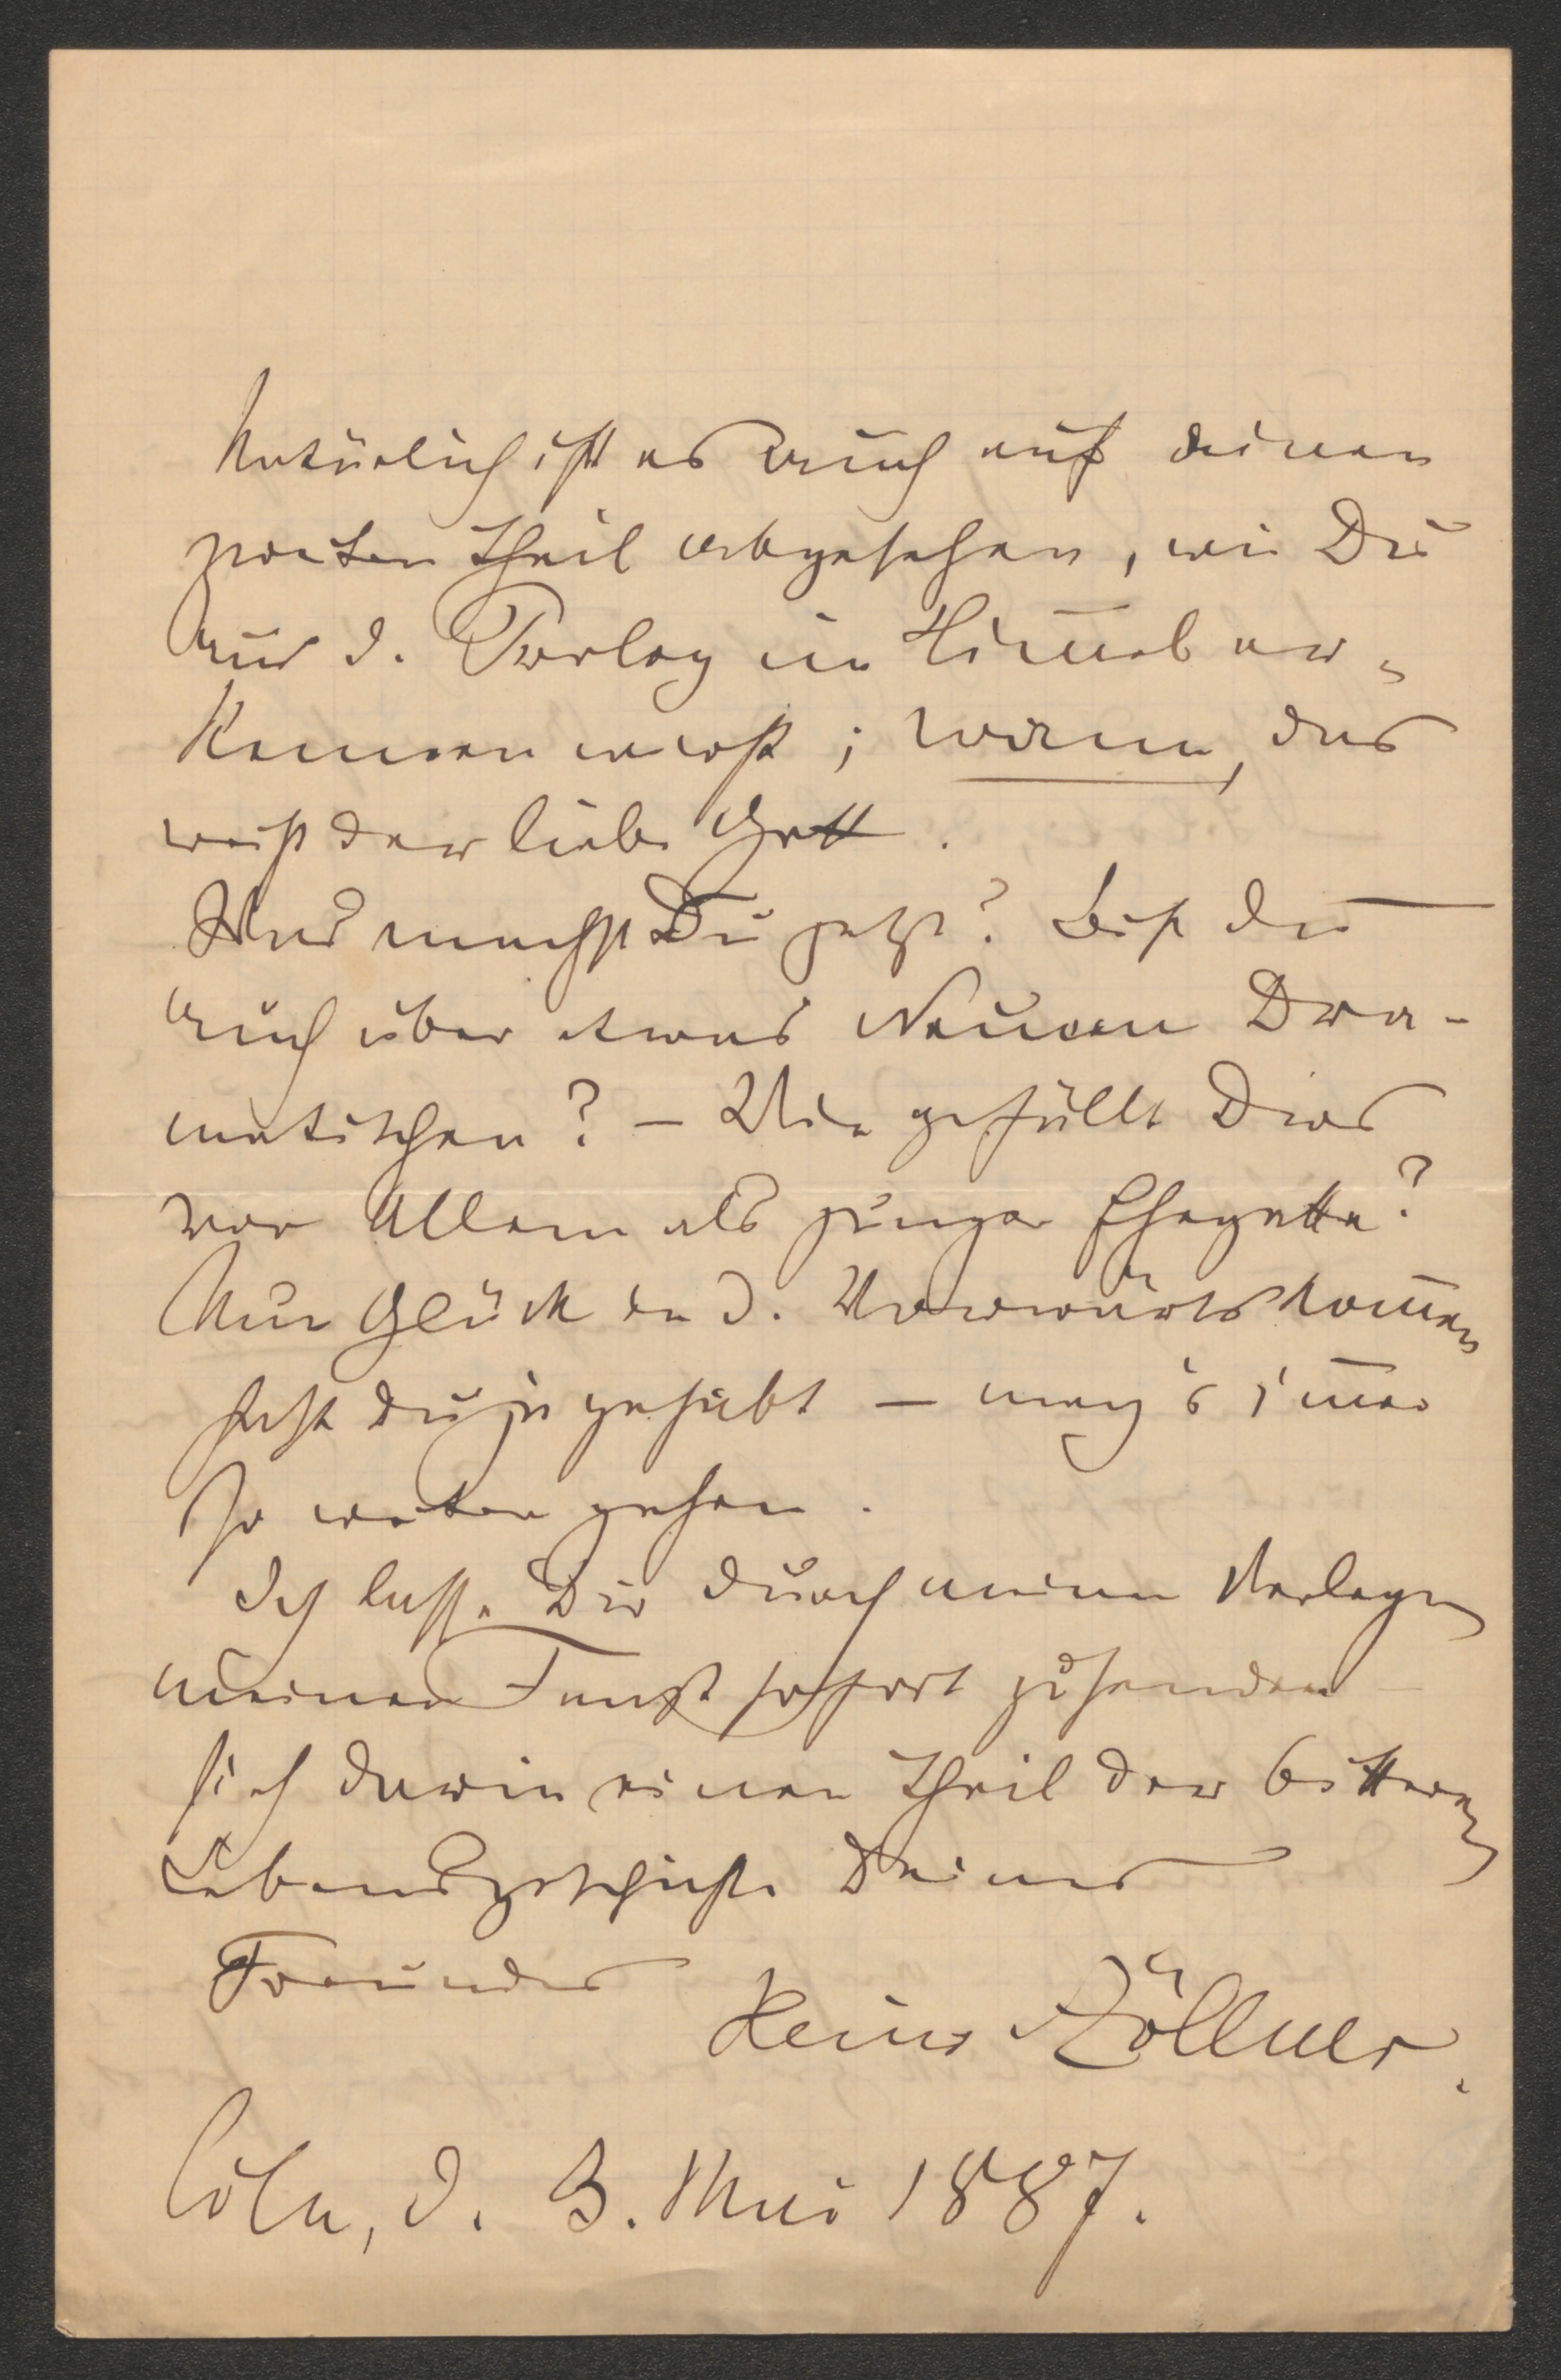 Natürlich ist es auch auf deinen
zweiten Theil abgesehen, wie Du
aus d. Prolog im Him̄el er-
kennen wirst; wann, das
weiß der liebe Gott.
Was machst Du jetzt? Bist du
auch über etwas Neuem Dra-
matischen? – Wie gefällt Dirs
vor Allem als junger Ehegatte?
Nun Glück in d. Vorwärtskom̄en
hast du ja gehabt – mag's im̄er
so weiter gehen.
Ich lasse Dir durch meinen Verleger
meinen Faust sofort zusenden –
sieh darin einen Theil der bitteren
Lebensgeschichte Deines
Freundes
Heinr Zöllner.
Cöln, d. 3. Mai 1887.